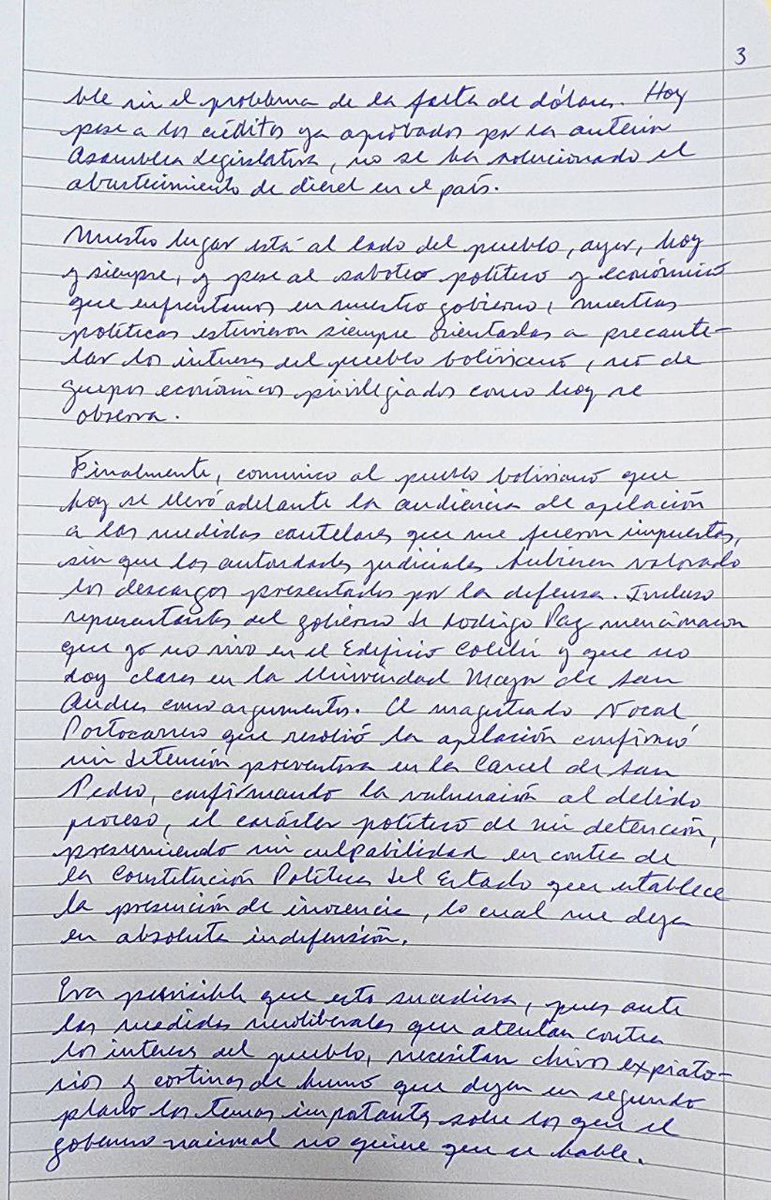 3
ble sin el problema de la falta de dólares. Hoy
pese a los créditos ya aprobados por la anterior
Asamblea Legislativa, no se ha solucionado el
abastecimiento de diesel en el país.
Nuestro lugar está al lado del pueblo, ayer, hoy
y siempre, y pese al saboteo político y económico
que enfrentamos en nuestro gobierno, nuestras
políticas estuvieron siempre orientadas a precaute-
lar los intereses del pueblo boliviano, no de
grupos económicos privilegiados como hoy se
observa.
Finalmente, comunico al pueblo boliviano que
hoy se llevó adelante la audiencia de apelación
a las medidas cautelares que me fueron impuestas,
sin que las autoridades judiciales hubieran valorado
los descargos presentados por la defensa. Incluso
representantes del gobierno de Rodrigo Paz mencionaron
que yo no vivo en el Edificio Colibrí y que no
doy clases en la Universidad Mayor de San
Andres como argumentos. El magistrado Vocal
Portocarrero que resolvió la apelación confirmó
mi detención preventiva en la Carcel de San
Pedro, confirmando la vulneración al debido
proceso, el carácter político de mi detención,
presumiendo mi culpabilidad en contra de
la Constitución Política del Estado que establece
la presunción de inocencia, lo cual me deja
en absoluta indefensión.
Era previsible que esto sucediera, pues ante
las medidas neoliberales que atentan contra
los intereses del pueblo, necesitan chivos expiato-
rios y cortinas de humo que dejan en segundo
plano los temas importantes sobre los que el
gobierno nacional no quiere que se hable.